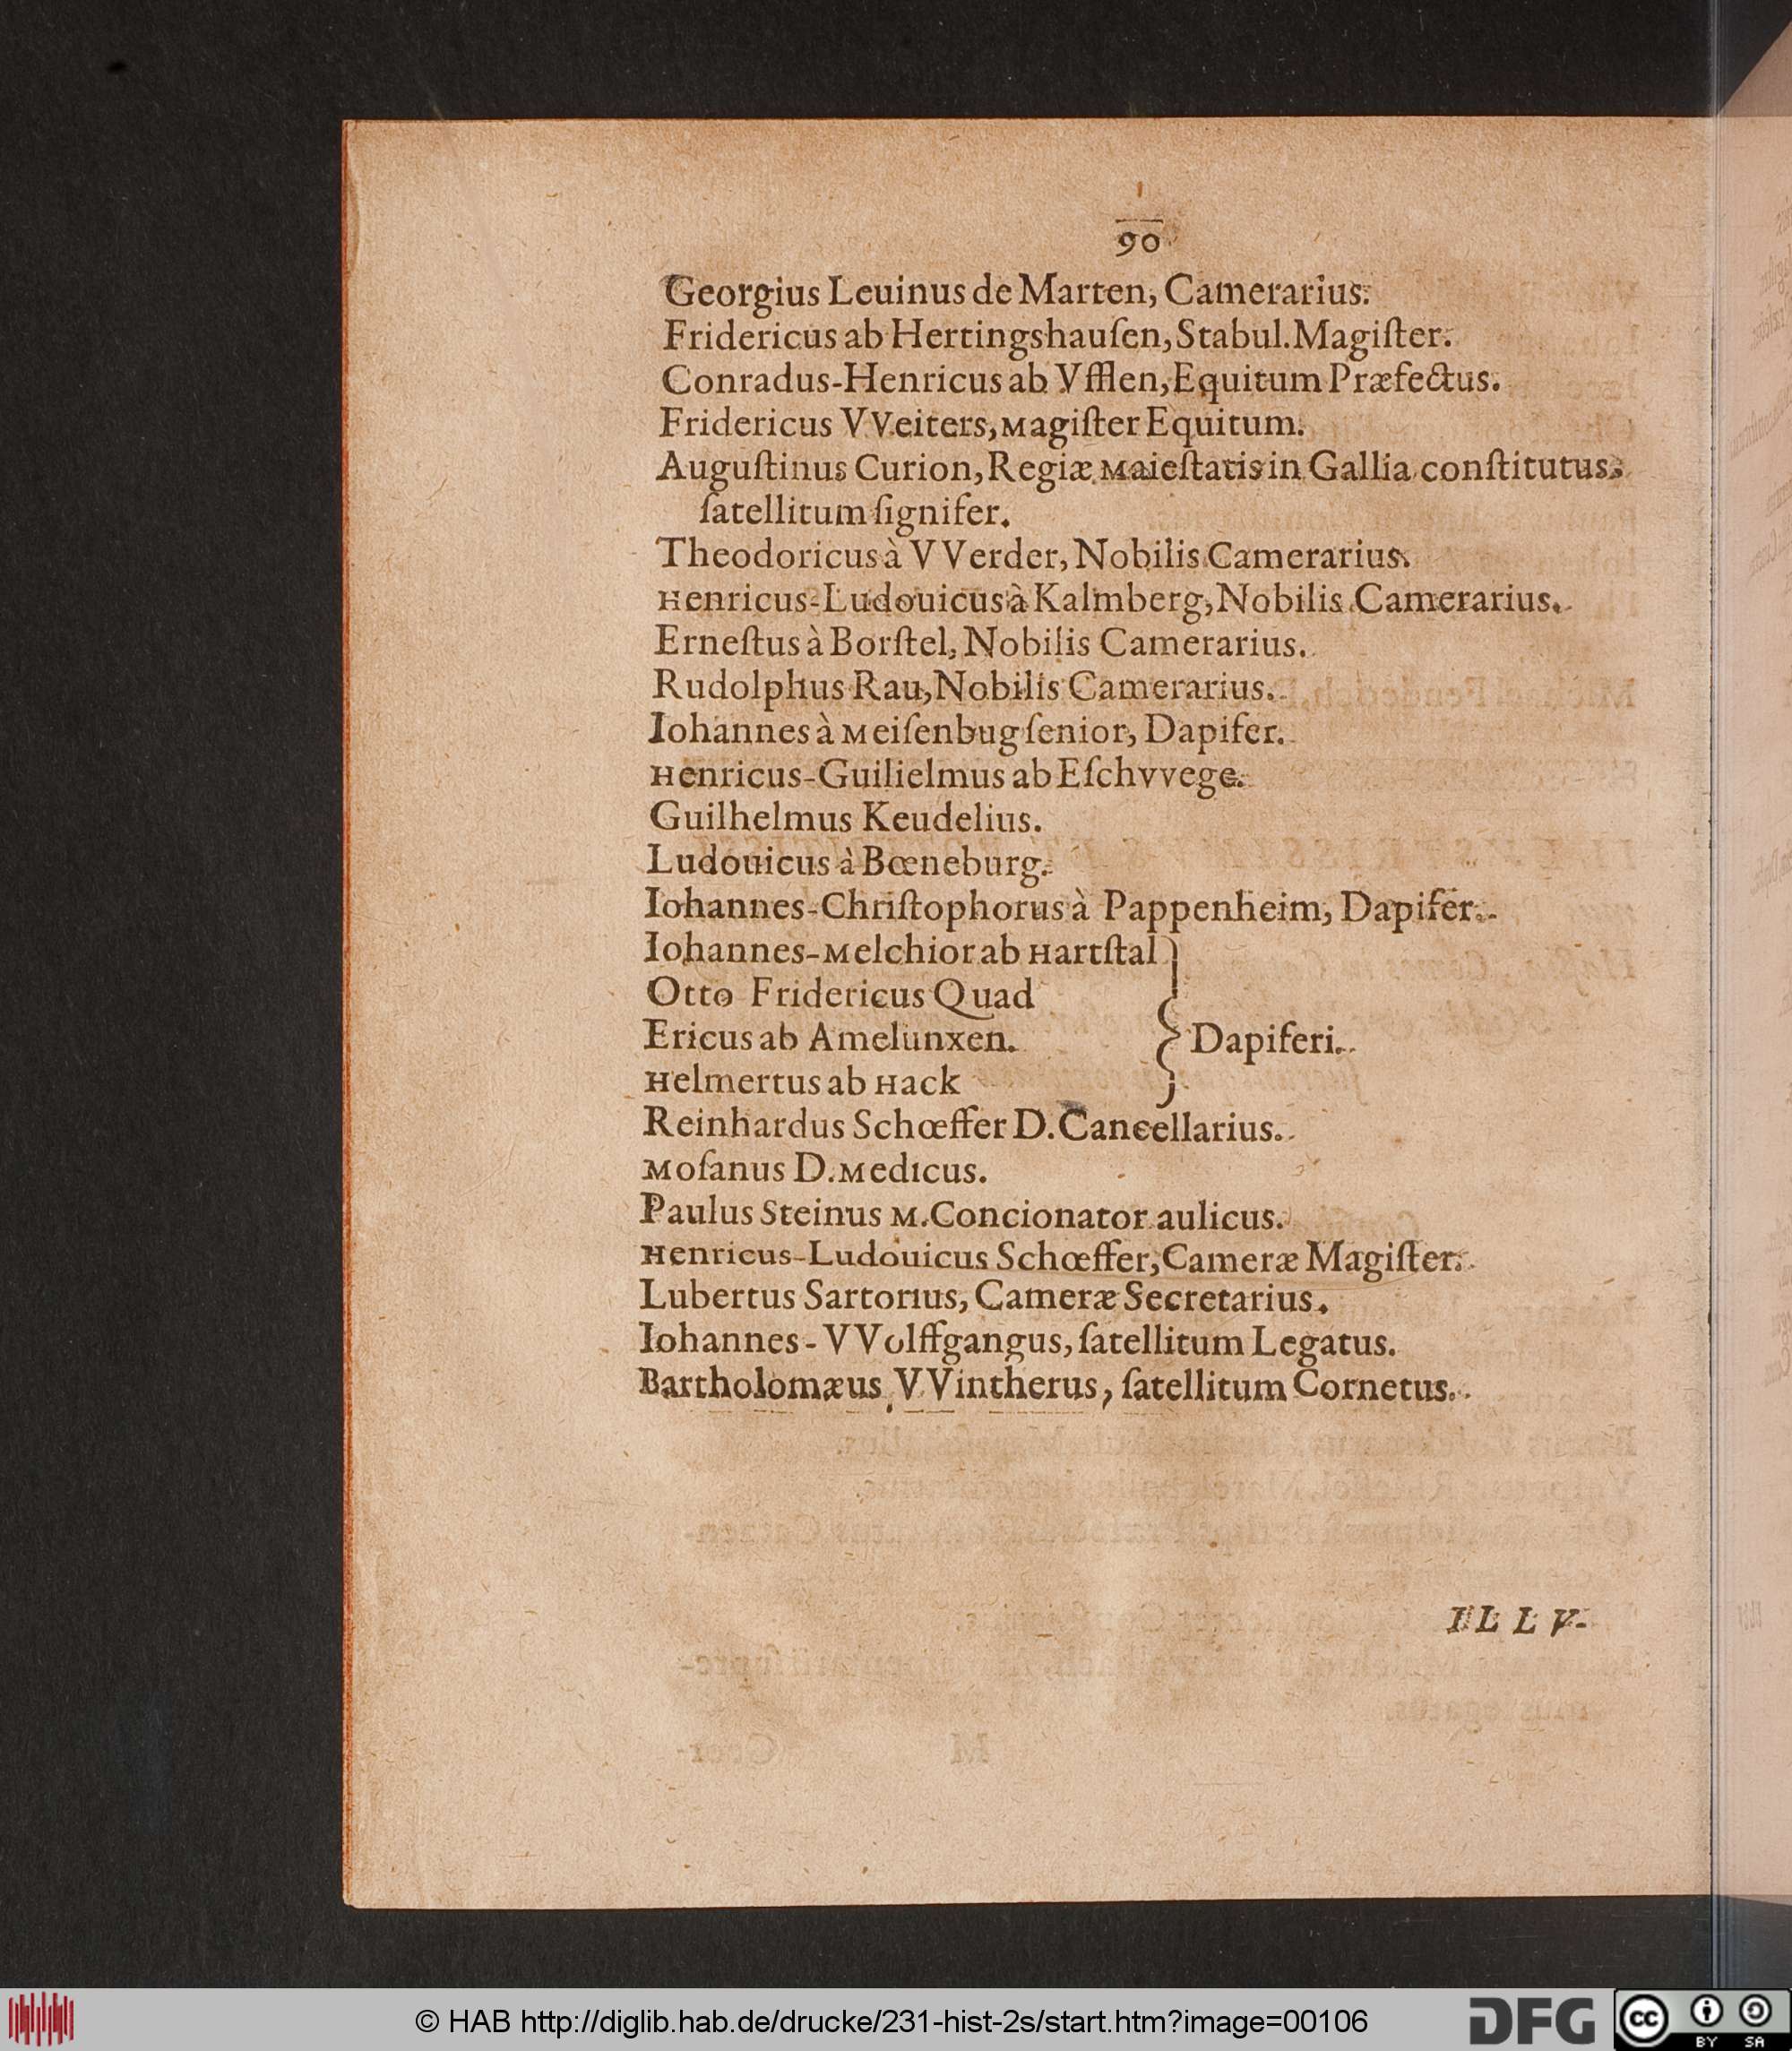 90
Georgius Leuinus de Marten, Camerarius.
Fridericus ab Hertingshauſen, Stabul. Magiſter.
Conradus-Henricus ab Vfflen, Equitum Præfectus.
Fridericus VVeiters, Magiſter Equitum.
Auguſtinus Curion, Regiæ Maieſtatis in Gallia conſtitutus
ſatellitum ſignifer.
Theodoricus à VVerder, Nobilis Camerarius.
Henricus-Ludouicus à Kalmberg, Nobilis Camerarius.
Erneſtus à Borſtel, Nobilis Camerarius.
Rudolphus Rau, Nobilis Camerarius.
Iohannes à Meiſenbug ſenior, Dapifer.
Henricus-Guilielmus ab Eſchvvege.
Guilhelmus Keudelius.
Ludouicus à Bœneburg.
Iohannes-Chriſtophorus à Pappenheim, Dapifer.
Iohannes-Melchior ab Hartſtal
Otto Fridericus Quad
Ericus ab Amelunxen. } Dapiferi.
Helmertus ab Hack
Reinhardus Schœffer D. Cancellarius.
Moſanus D. Medicus.
Paulus Steinus M. Concionator aulicus.
Henricus-Ludouicus Schœffer, Cameræ Magiſter.
Lubertus Sartorius, Cameræ Secretarius.
Iohannes-VVolffgangus, ſatellitum Legatus.
Bartholomæus VVintherus, ſatellitum Cornetus.
ILLV-
© HAB http://diglib.hab.de/drucke/231-hist-2s/start.htm?image=00106
DFG
cc BY SA